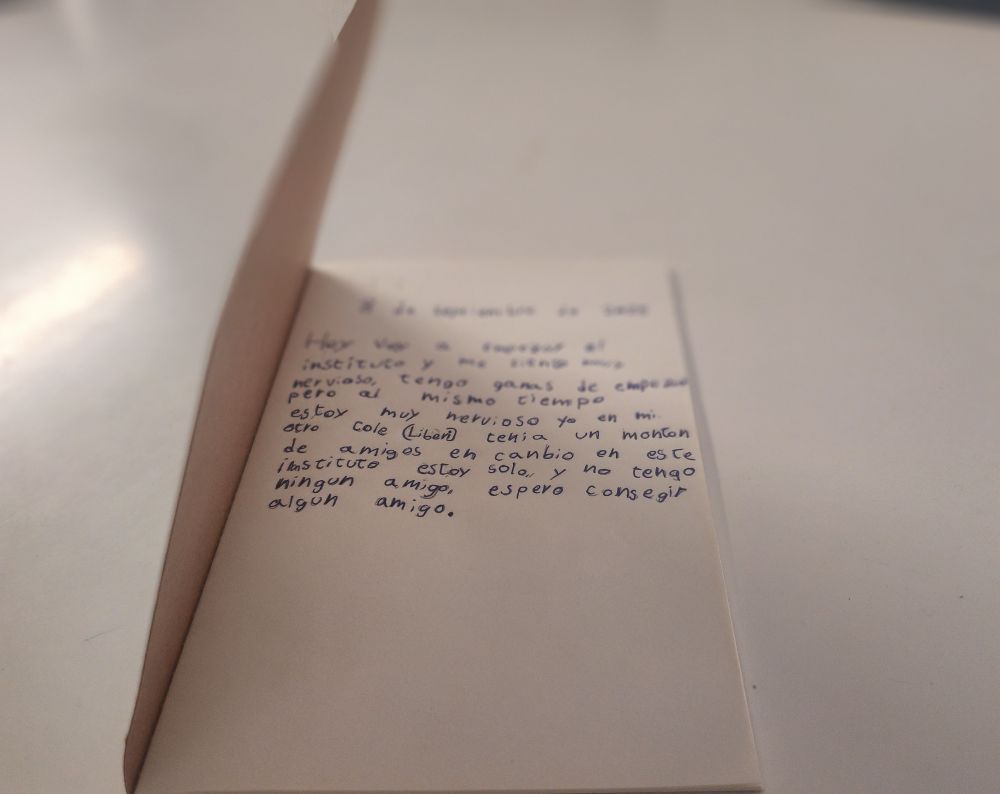 8 de septiembre de
Hoy voy a empezar el
instituto y me siento muy
nervioso, tengo ganas de empezar
pero al mismo tiempo
estoy muy nervioso yo en mi
otro cole (Liberi) tenia un monton
de amigos en canbio en este
instituto estoy solo, y no tengo
ningun amigo, espero consegir
algun amigo.